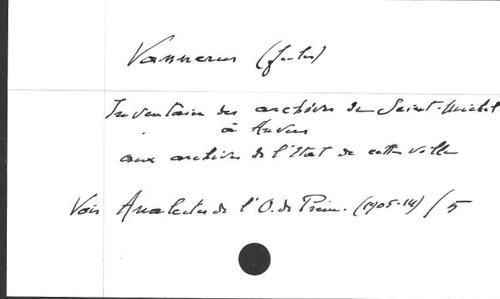 Vannerus (Jules)
Inventaire des archives de Saint-Michel
à Anvers
aux archives de l'Etat de cette ville
Voir Analectes de l'O. de Prém. (1905-14) / 5